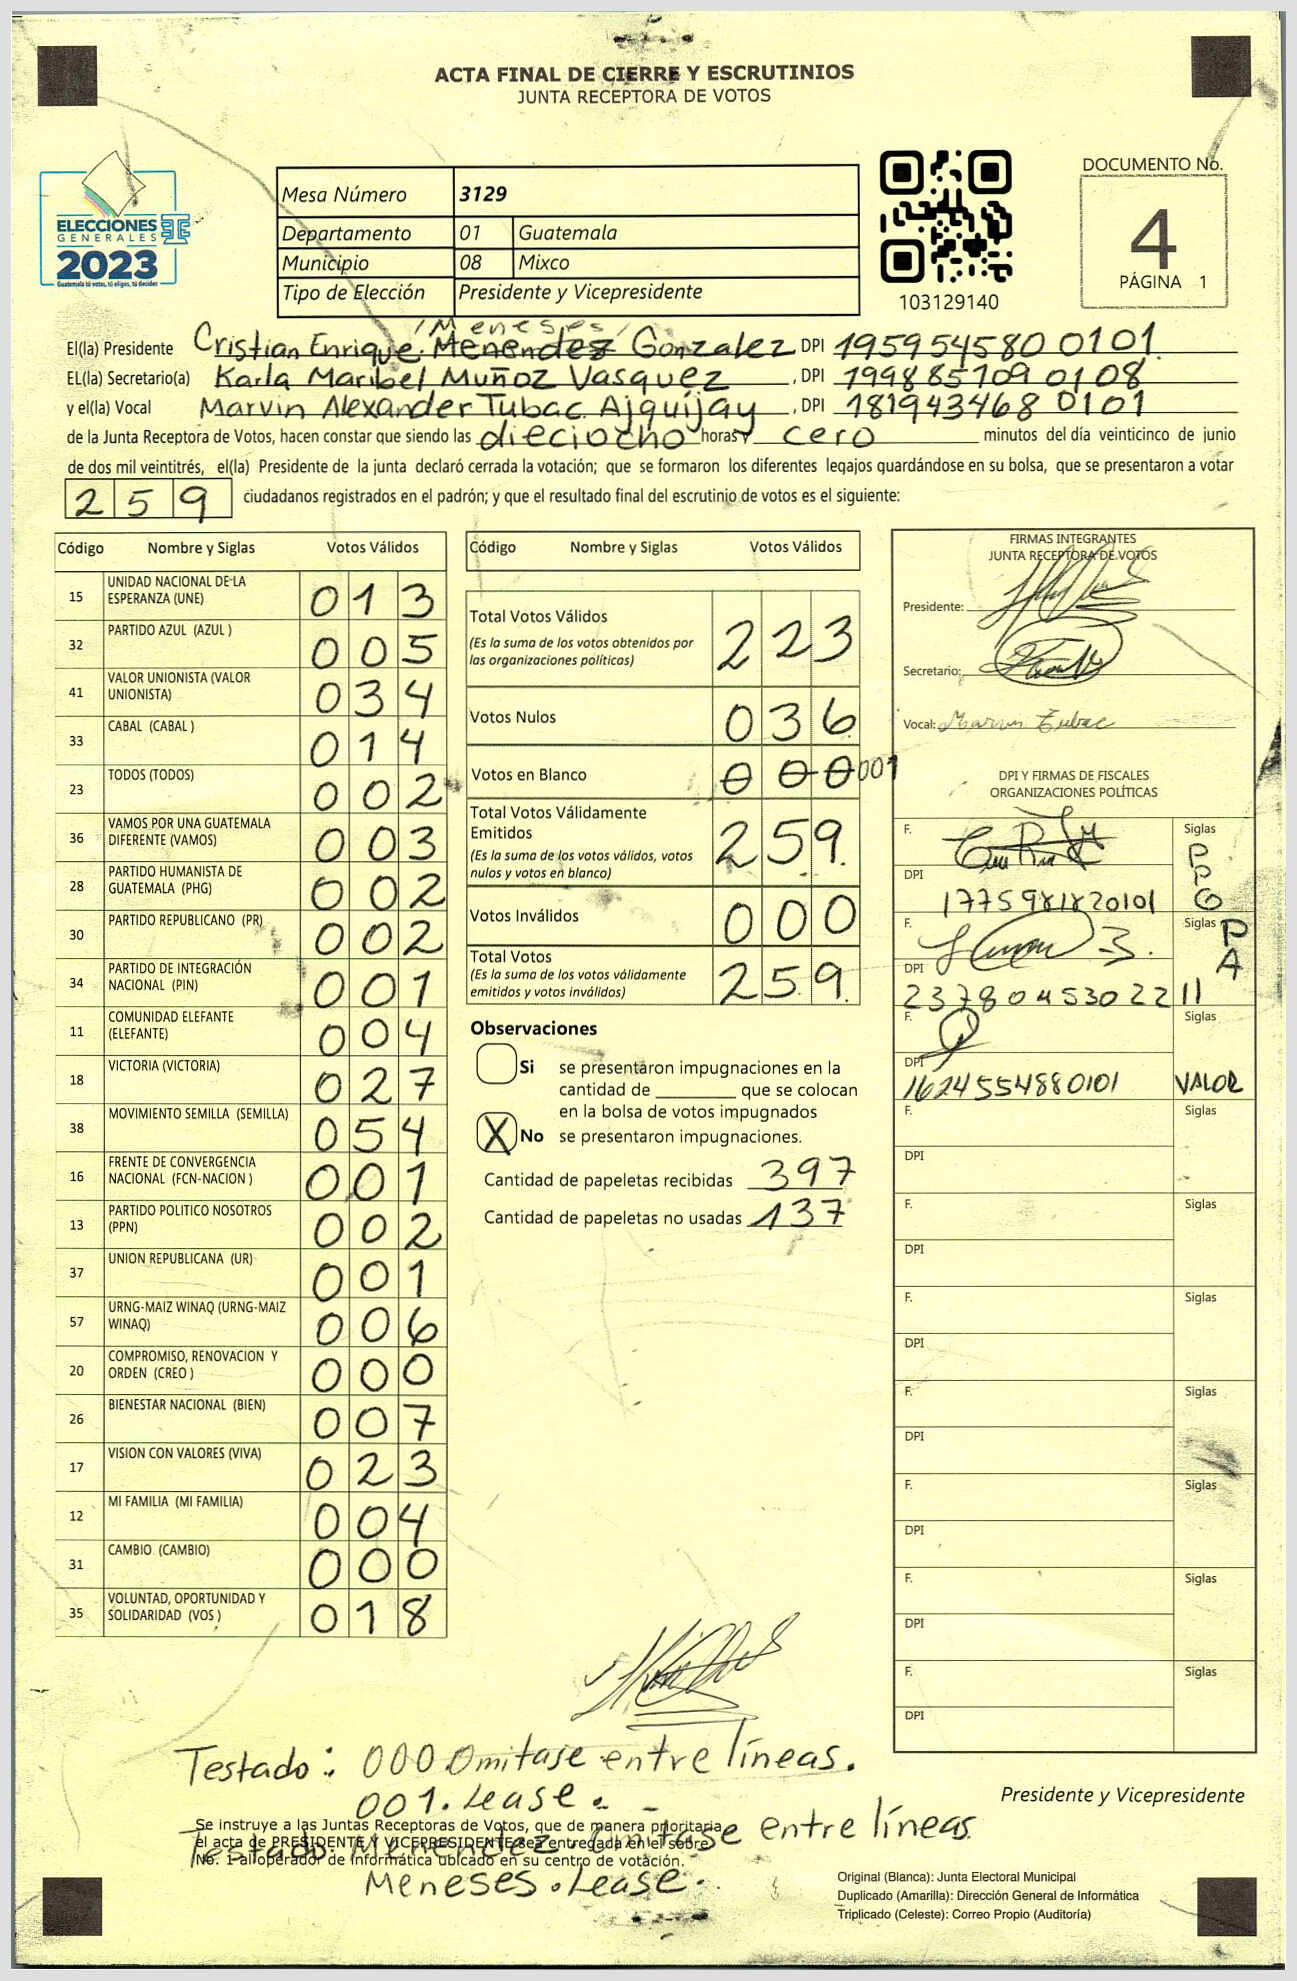 ACTA FINAL DE CIERRE Y ESCRUTINIOS
JUNTA RECEPTORA DE VOTOS
ELECCIONES
GENERALES
2023
Guatemala tú votas, tú eliges, tú decides
Mesa Número 3129
Departamento 01 Guatemala
Municipio 08 Mixco
Tipo de Elección Presidente y Vicepresidente
103129140
DOCUMENTO No.
4
PÁGINA 1
Meneses
El(la) Presidente Cristian Enrique Menendez Gonzalez DPI 195954580 0101
EL(la) Secretario(a) Karla Maribel Muñoz Vasquez , DPI 199885709 0108
y el(la) Vocal Marvin Alexander Tubac Ajquijay , DPI 181943468 0101
de la Junta Receptora de Votos, hacen constar que siendo las dieciocho horas y cero minutos del día veinticinco de junio
de dos mil veintitrés, el(la) Presidente de la junta declaró cerrada la votación; que se formaron los diferentes legajos guardándose en su bolsa, que se presentaron a votar
259 ciudadanos registrados en el padrón; y que el resultado final del escrutinio de votos es el siguiente:
Código Nombre y Siglas Votos Válidos
15 UNIDAD NACIONAL DE LA ESPERANZA (UNE) 013
32 PARTIDO AZUL (AZUL ) 005
41 VALOR UNIONISTA (VALOR UNIONISTA) 034
33 CABAL (CABAL ) 014
23 TODOS (TODOS) 002
36 VAMOS POR UNA GUATEMALA DIFERENTE (VAMOS) 003
28 PARTIDO HUMANISTA DE GUATEMALA (PHG) 002
30 PARTIDO REPUBLICANO (PR) 002
34 PARTIDO DE INTEGRACIÓN NACIONAL (PIN) 001
11 COMUNIDAD ELEFANTE (ELEFANTE) 004
18 VICTORIA (VICTORIA) 027
38 MOVIMIENTO SEMILLA (SEMILLA) 054
16 FRENTE DE CONVERGENCIA NACIONAL (FCN-NACION ) 001
13 PARTIDO POLITICO NOSOTROS (PPN) 002
37 UNION REPUBLICANA (UR) 001
57 URNG-MAIZ WINAQ (URNG-MAIZ WINAQ) 006
20 COMPROMISO, RENOVACION Y ORDEN (CREO ) 000
26 BIENESTAR NACIONAL (BIEN) 007
17 VISION CON VALORES (VIVA) 023
12 MI FAMILIA (MI FAMILIA) 004
31 CAMBIO (CAMBIO) 000
35 VOLUNTAD, OPORTUNIDAD Y SOLIDARIDAD (VOS ) 018
Código Nombre y Siglas Votos Válidos
Total Votos Válidos 223
(Es la suma de los votos obtenidos por
las organizaciones políticas)
Votos Nulos 036
Votos en Blanco 000 001
Total Votos Válidamente
Emitidos 259.
(Es la suma de los votos válidos, votos
nulos y votos en blanco)
Votos Inválidos 000
Total Votos 259.
(Es la suma de los votos válidamente
emitidos y votos inválidos)
Observaciones
Si se presentaron impugnaciones en la
cantidad de ________ que se colocan
en la bolsa de votos impugnados
X No se presentaron impugnaciones.
Cantidad de papeletas recibidas 397
Cantidad de papeletas no usadas 137
FIRMAS INTEGRANTES
JUNTA RECEPTORA DE VOTOS
Presidente:
Secretario:
Vocal: Marvin Tubac
DPI Y FIRMAS DE FISCALES
ORGANIZACIONES POLÍTICAS
F. Siglas
DPI
1775981820101
F. Siglas
DPI
2378045302211
F. Siglas
DPI
16245554880101 VALOR
F. Siglas
DPI
F. Siglas
DPI
F. Siglas
DPI
F. Siglas
DPI
F. Siglas
DPI
F. Siglas
DPI
F. Siglas
DPI
Testado: 000 Omitase entre líneas.
001. Lease.
Testado: Menendez Omitase entre líneas.
Meneses. Lease.
Se instruye a las Juntas Receptoras de Votos, que de manera prioritaria
el acta de PRESIDENTE Y VICEPRESIDENTE sea entregada en el sobre
No. 1 al operador de Informática ubicado en su centro de votación.
Presidente y Vicepresidente
Original (Blanca): Junta Electoral Municipal
Duplicado (Amarilla): Dirección General de Informática
Triplicado (Celeste): Correo Propio (Auditoría)